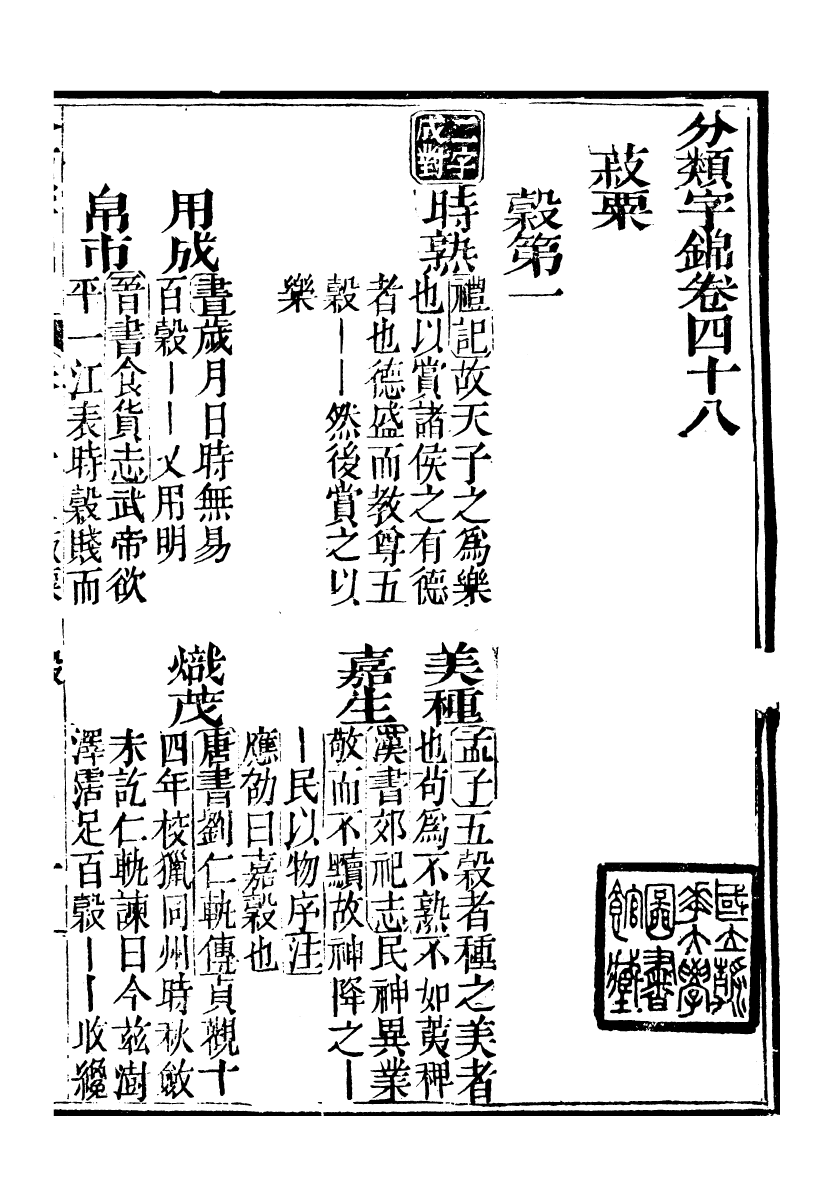 分類字錦卷四十八
菽粟
穀第一
二字
成對
時熟
禮記故天子之爲樂
也以賞諸侯之有德
者也德盛而教尊五
穀丨丨然後賞之以
樂
美種
孟子五穀者種之美者
也苟爲不熟不如荑稗
嘉生
漢書郊祀志民神異業
敬而不黷故神降之丨
丨民以物序注
應劭曰嘉穀也
用成
書歲月日時無易
百穀丨丨乂用明
熾茂
唐書劉仁軌傳貞觀十
四年校獵同州時秋斂
未訖仁軌諫曰今茲澍
澤霑足百穀丨丨收纔
帛市
晉書食貨志武帝欲
平一江表時穀賤而
國立清
華大學
圖書
館藏